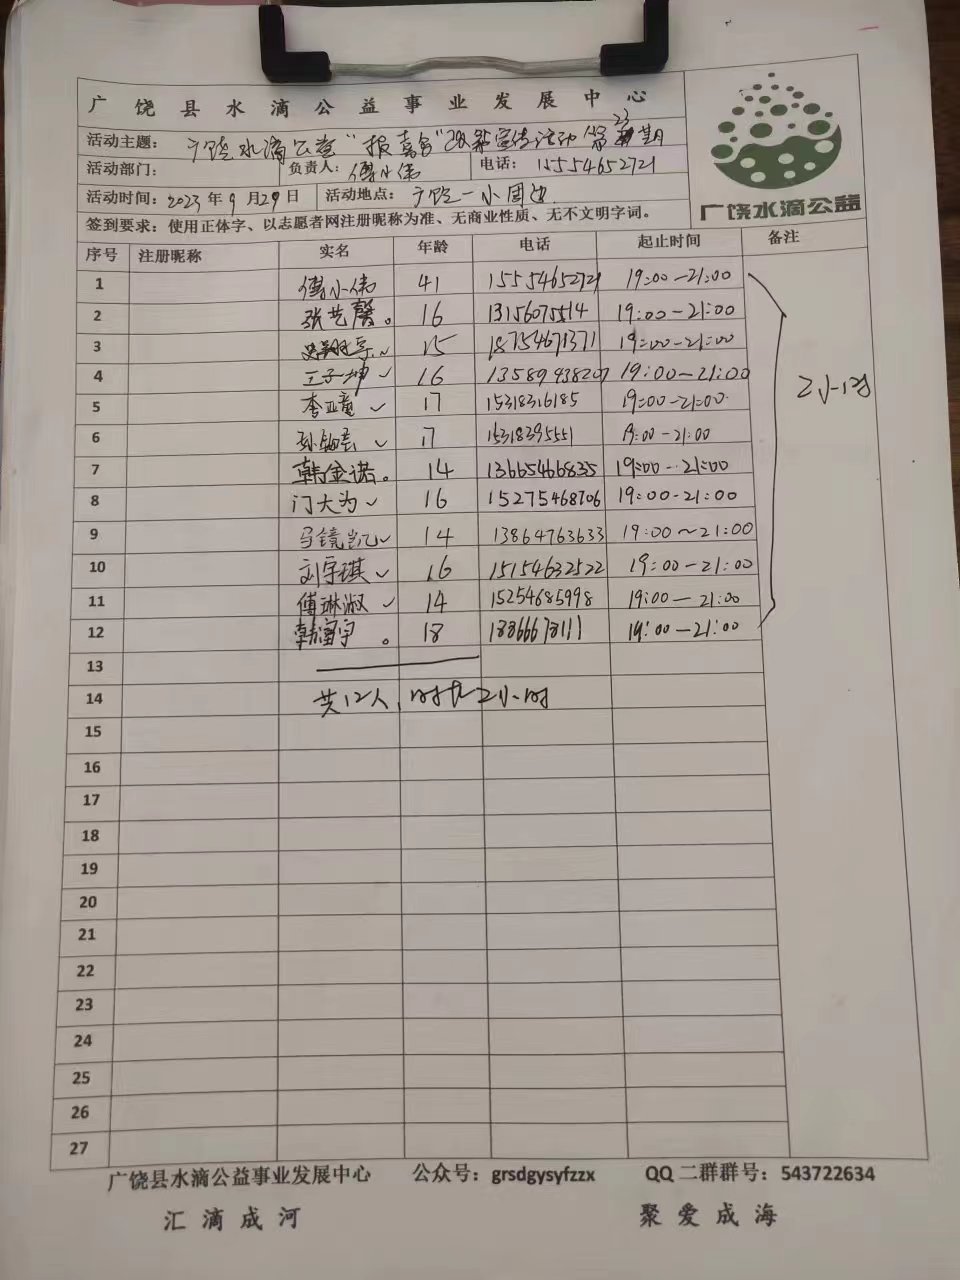 广饶县水滴公益事业发展中心
活动主题： 广饶水滴公益"报嘉台"政策宣传活动 第23期
活动部门： 负责人：傅小伟 电话：15554652721
活动时间：2023年9月29日 活动地点：广饶一小周边
签到要求：使用正体字、以志愿者网注册昵称为准、无商业性质、无不文明字词。
广饶水滴公益
序号 注册昵称 实名 年龄 电话 起止时间 备注
1 傅小伟 41 15554652721 19:00—21:00
2 张艺馨。 16 13156075514 19:00-21:00
3 15 18754671371 19:00-21:00
4 王子坤 ✓ 16 13589938207 19:00-21:00
5 李亚童 ✓ 17 15318316185 19:00-21:00
6 ✓ 17 15318395551 19:00-21:00
7 韩金诺。 14 13665466835 19:00-21:00
8 门大为 ✓ 16 15275468706 19:00-21:00
9 马镜凯 ✓ 14 13864763633 19:00~21:00
10 刘宇琪 ✓ 16 15154632522 19:00-21:00
11 傅琳淑 ✓ 14 15254685998 19:00—21:00
12 韩富宇 。 18 18866678111 19:00—21:00
2小时
13
14 共12人，时长2小时
15
16
17
18
19
20
21
22
23
24
25
26
27
广饶县水滴公益事业发展中心 公众号：grsdgysyfzzx QQ二群群号：543722634
汇滴成河 聚爱成海